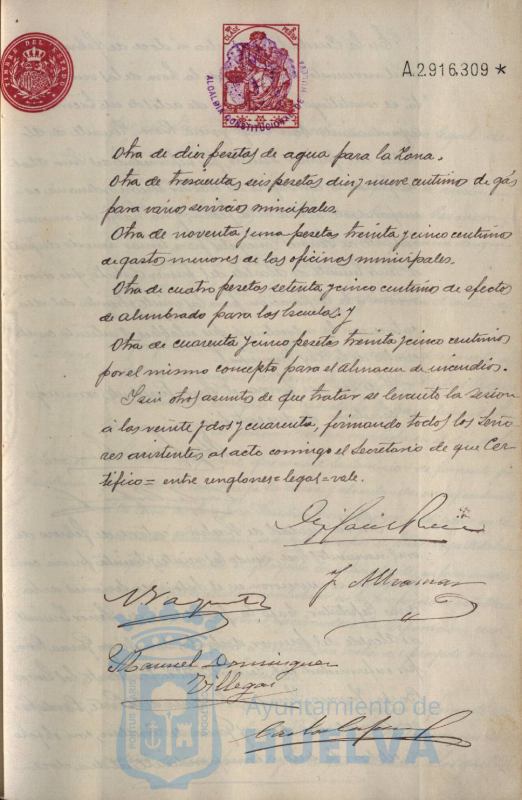 TIMBRE DEL ESTADO
CLASE
ALCALDIA CONSTITUCIONAL DE HUELVA
A.2.916.309 *
Otra de diez pesetas de agua para la Zona.
Otra de trescientas seis pesetas diez y nueve centimos de gás
para varios servicios municipales.
Otra de noventa y una pesetas treinta y cinco centimos
de gastos menores de las oficinas municipales.
Otra de cuatro pesetas setenta y cinco centimos de efectos
de alumbrado para las Escuelas, y
Otra de cuarenta y cinco pesetas treinta y cinco centimos
por el mismo concepto para el almacen de incendios.
Y sin otros asuntos de que tratar se levantó la sesion
á las veinte y dos y cuarenta, firmando todos los Seño-
res asistentes al acto conmigo el Secretario de que Cer-
tifico = entre renglones = legal = vale.
Manuel Dominguez
Villegas
Ayuntamiento de
HUELVA